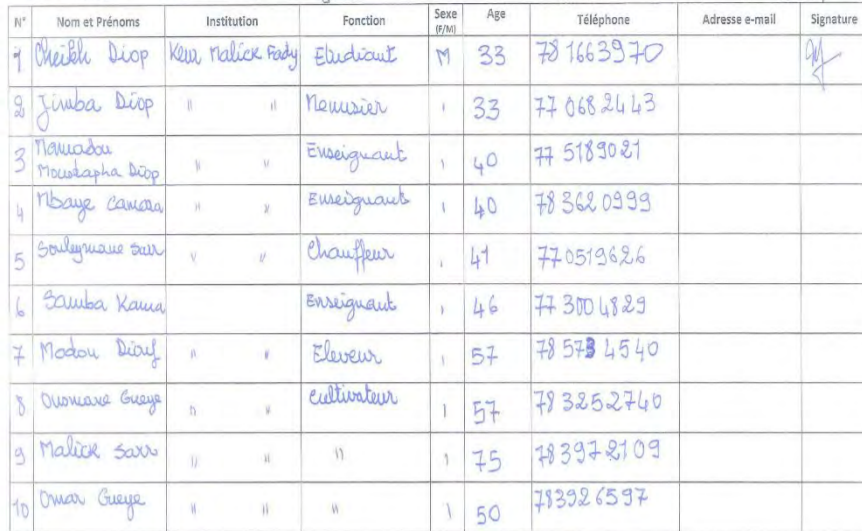 N° Nom et Prénoms Institution Fonction Sexe (F/M) Age Téléphone Adresse e-mail Signature
1 Cheikh Diop Keur Malick Fady Etudiant M 33 78 1663970
2 Jimba Diop " " Menusier 33 77 068 2443
3 Mamadou Moustapha Diop " " Enseignant 40 77 5189021
4 Mbaye Camara " " Enseignant 40 78 362 0999
5 Souleymane Sarr " " Chauffeur 41 770519626
6 Samba Kama Enseignant 46 77 300 4829
7 Modou Diouf " " Eleveur 57 78 573 4540
8 Ousmane Gueye " " Cultivateur 57 78 3252740
9 Malick Sarr " " " 75 78 397 2109
10 Omar Gueye " " " 50 783926597